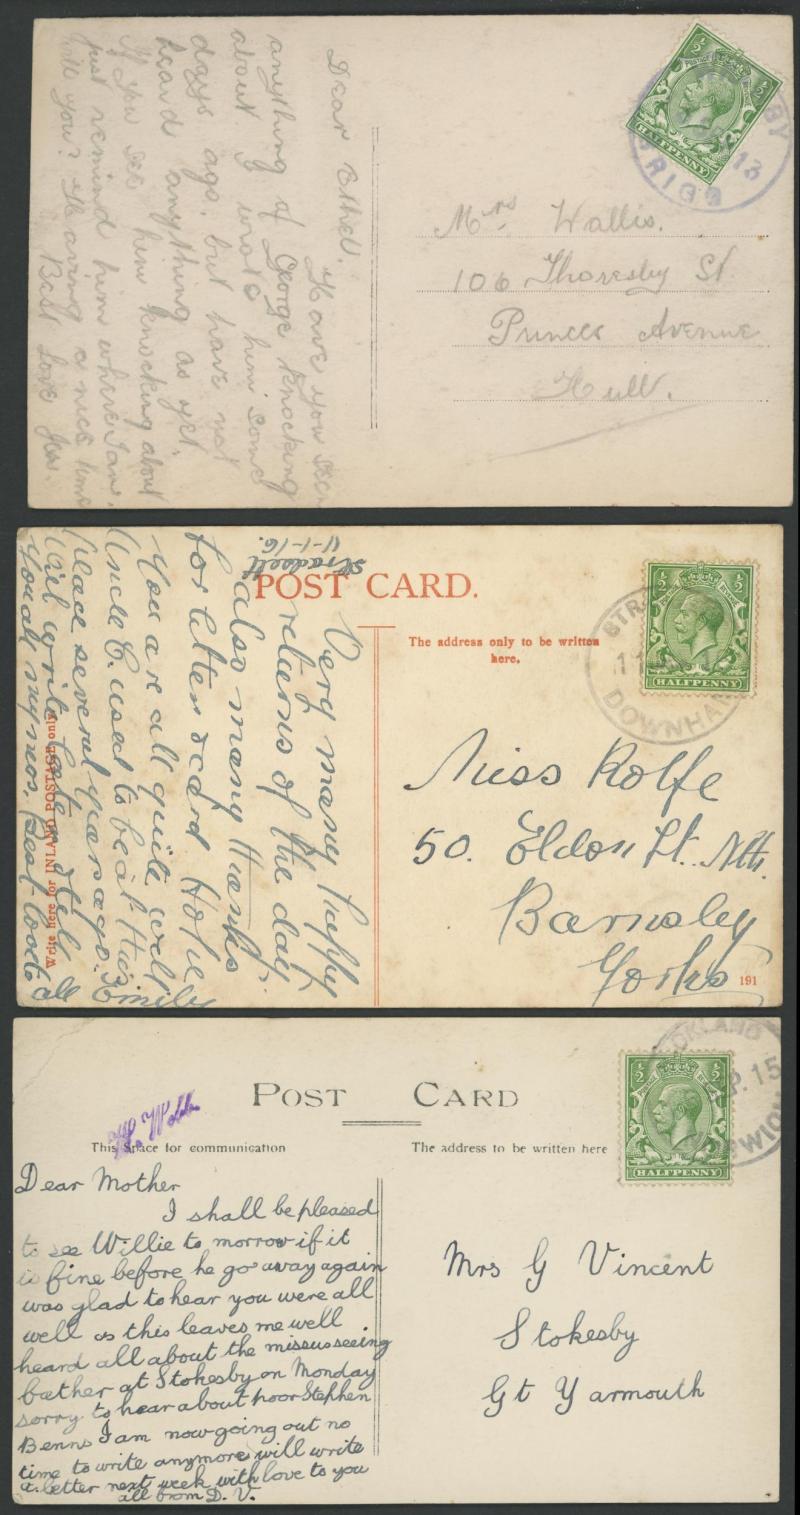 Dear Ethel.
Have you seen
anything of George knocking
about I wrote him some
days ago, but have not
heard anything as yet.
If you see him knocking about
just remind him where I am,
will you? Having a nice time
Best Love
Mrs Wallis.
106 Thoresby St
Princes Avenue
Hull.
POSTAGE
½ ½
HALFPENNY
BY
13
BRIGG
Stradsett
11-1-16.
POST CARD.
Very many happy
returns of the day
also many thanks
for letter & card. Hope
you are all quite well
Uncle E. used to be at this
place several years ago. Emily
Will write later & tell
you all my news. Best love to all
Write here for INLAND POSTAGE only.
The address only to be written
here.
Miss Rolfe
50. Eldon St. Nth.
Barnsley
Yorks
191
½ ½
HALFPENNY
STRA
11
DOWNHAM
POST CARD
H. Webb
This Space for communication
The address to be written here
Dear Mother
I shall be pleased
to see Willie to morrow if it
is fine before he go away again
was glad to hear you were all
well as this leaves me well
heard all about the missus seeing
father at Stokesby on Monday
sorry to hear about poor Stephen
Benns I am now going out no
time to write anymore will write
a letter next week with love to you
all from D. V.
Mrs G Vincent
Stokesby
Gt Yarmouth
½ ½
HALFPENNY
OCKLAND
P. 15
WICH